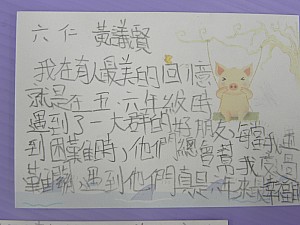 六仁 黃議賢
我在有人最美的回憶
就是在五.六年級時
遇到了一大群的好朋友,每當我遇
到困難時,他們總會幫我度過
難關,遇到他們真是 來 幸福